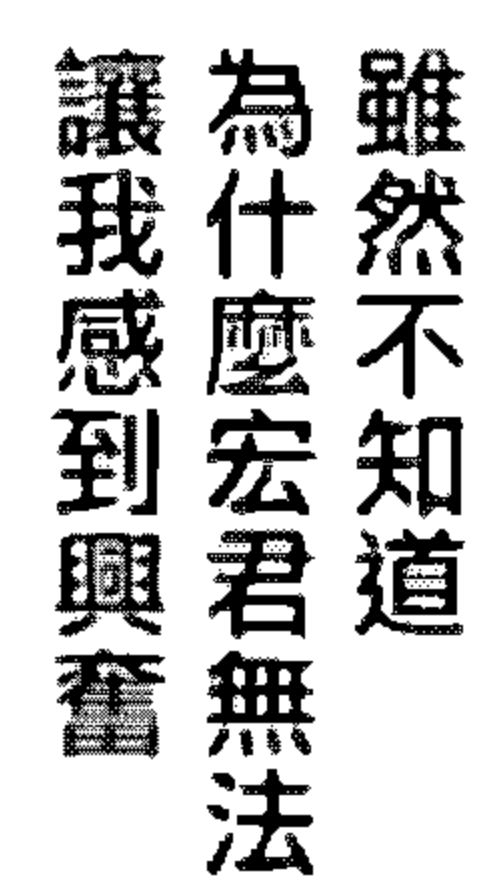 雖然不知道
為什麼宏君無法
讓我感到興奮